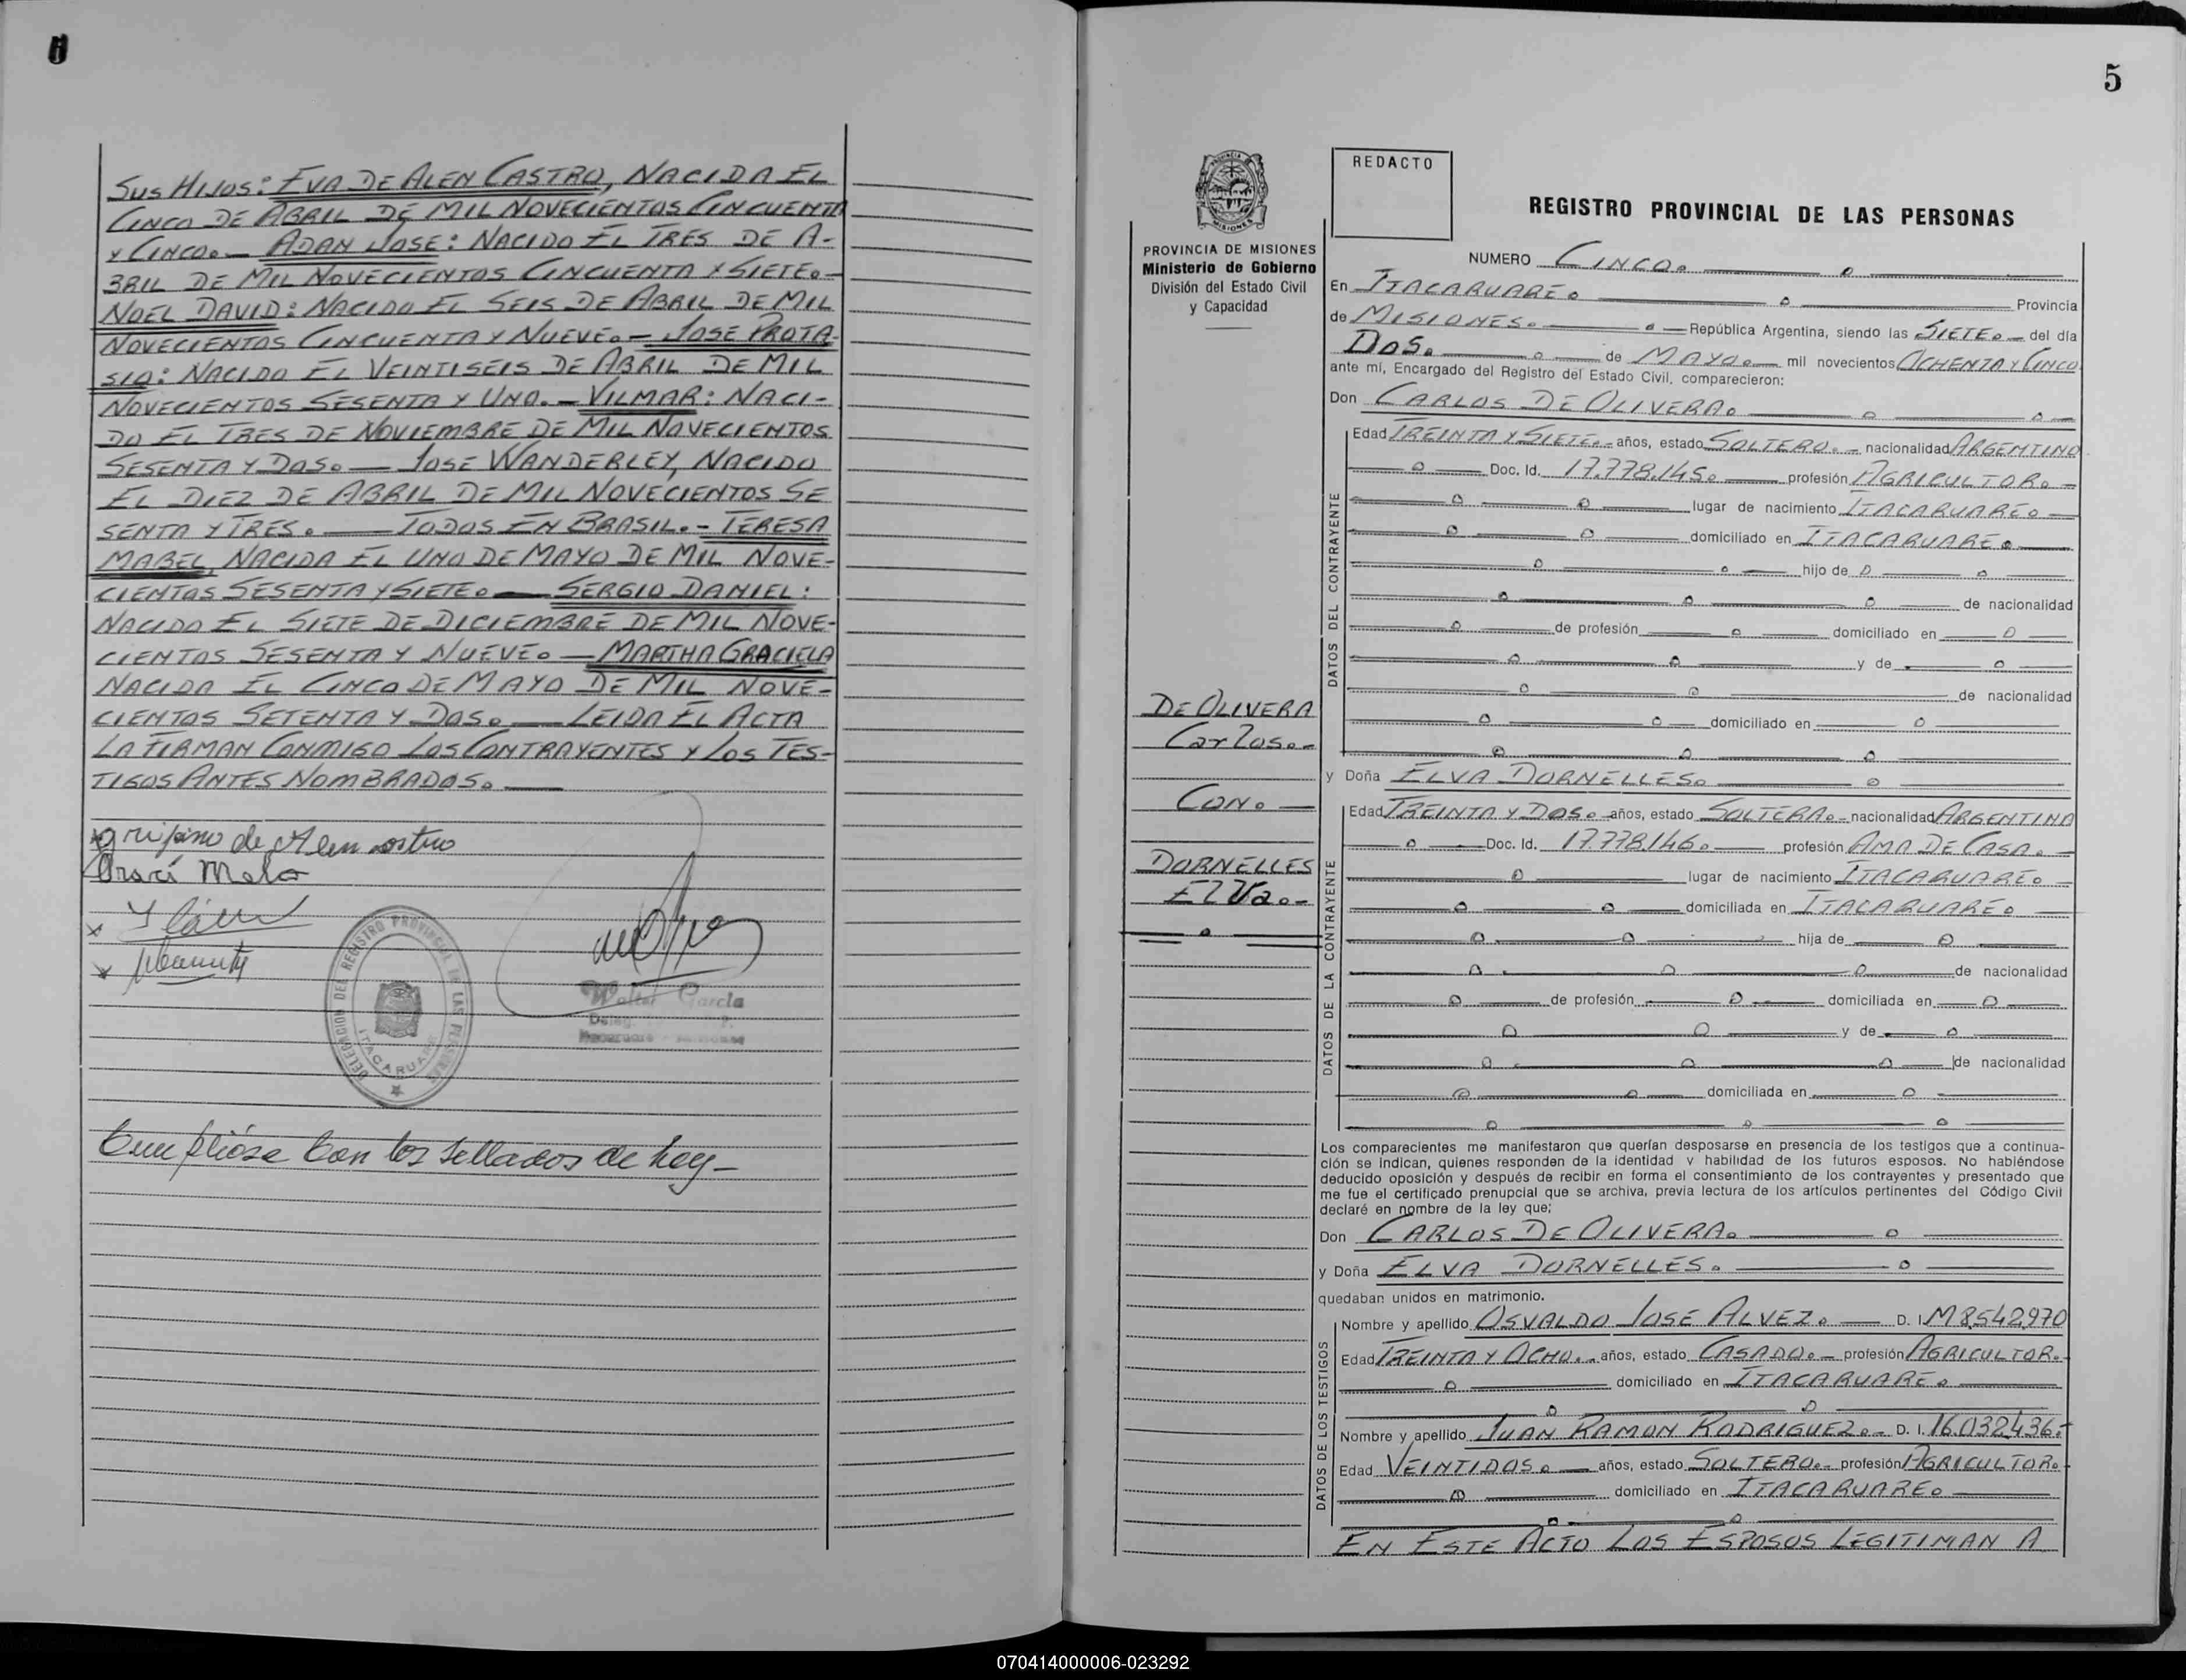 SUS HIJOS: EVA DE ALEN CASTRO, NACIDA EL
CINCO DE ABRIL DE MIL NOVECIENTOS CINCUENTA
Y CINCO.— ADAN JOSE: NACIDO EL TRES DE A-
BRIL DE MIL NOVECIENTOS CINCUENTA Y SIETE.—
NOEL DAVID: NACIDO EL SEIS DE ABRIL DE MIL
NOVECIENTOS CINCUENTA Y NUEVE.— JOSE PROTA-
SIO: NACIDO EL VEINTISEIS DE ABRIL DE MIL
NOVECIENTOS SESENTA Y UNO.— VILMAR: NACI-
DO EL TRES DE NOVIEMBRE DE MIL NOVECIENTOS
SESENTA Y DOS.— JOSE WANDERLEY, NACIDO
EL DIEZ DE ABRIL DE MIL NOVECIENTOS SE
SENTA Y TRES.— TODOS EN BRASIL.- TERESA
MABEL, NACIDA EL UNO DE MAYO DE MIL NOVE-
CIENTOS SESENTA Y SIETE.— SERGIO DANIEL:
NACIDO EL SIETE DE DICIEMBRE DE MIL NOVE-
CIENTOS SESENTA Y NUEVE.— MARTHA GRACIELA
NACIDA EL CINCO DE MAYO DE MIL NOVE-
CIENTOS SETENTA Y DOS.— LEIDA EL ACTA
LA FIRMAN CONMIGO LOS CONTRAYENTES Y LOS TES-
TIGOS ANTES NOMBRADOS.—
de Alem
Melo
Walter Garcia
DELEGACION DEL REGISTRO PROVINCIAL DE LAS PERSONAS
ITACARUARE
Cumplióse con los sellados de ley—
5
PROVINCIA DE MISIONES
Ministerio de Gobierno
División del Estado Civil
y Capacidad
DE OLIVERA
Carlos.-
CON.—
DORNELLES
Elva.-
REDACTO
REGISTRO PROVINCIAL DE LAS PERSONAS
NUMERO CINCO.
En ITACARUARE. Provincia
de MISIONES. República Argentina, siendo las SIETE. del día
DOS. de MAYO. mil novecientos OCHENTA Y CINCO
ante mí, Encargado del Registro del Estado Civil, comparecieron:
Don CARLOS DE OLIVERA.
DATOS DEL CONTRAYENTE
Edad TREINTA Y SIETE.- años, estado SOLTERO.- nacionalidad ARGENTINO
Doc. Id. 17.778.145. profesión AGRICULTOR.
lugar de nacimiento ITACARUARE.
domiciliado en ITACARUARE.
hijo de
de nacionalidad
de profesión domiciliado en
y de
de nacionalidad
domiciliado en
y Doña ELVA DORNELLES.
DATOS DE LA CONTRAYENTE
Edad TREINTA Y DOS. años, estado SOLTERA.- nacionalidad ARGENTINA
Doc. Id. 17.778.146. profesión AMA DE CASA.
lugar de nacimiento ITACARUARE.
domiciliada en ITACARUARE.
hija de
de nacionalidad
de profesión domiciliada en
y de
de nacionalidad
domiciliada en
Los comparecientes me manifestaron que querían desposarse en presencia de los testigos que a continua-
ción se indican, quienes responden de la identidad y habilidad de los futuros esposos. No habiéndose
deducido oposición y después de recibir en forma el consentimiento de los contrayentes y presentado que
me fue el certificado prenupcial que se archiva, previa lectura de los artículos pertinentes del Código Civil
declaré en nombre de la ley que;
Don CARLOS DE OLIVERA.
y Doña ELVA DORNELLES.
quedaban unidos en matrimonio.
DATOS DE LOS TESTIGOS
Nombre y apellido OSVALDO JOSE ALVEZ. D. I. M8.542.970
Edad TREINTA Y OCHO.- años, estado CASADO.- profesión AGRICULTOR.
domiciliado en ITACARUARE.
Nombre y apellido JUAN RAMON RODRIGUEZ.- D. I. 16.032.436.-
Edad VEINTIDOS. años, estado SOLTERO.- profesión AGRICULTOR.
domiciliado en ITACARUARE.
EN ESTE ACTO LOS ESPOSOS LEGITIMAN A
070414000006-023292